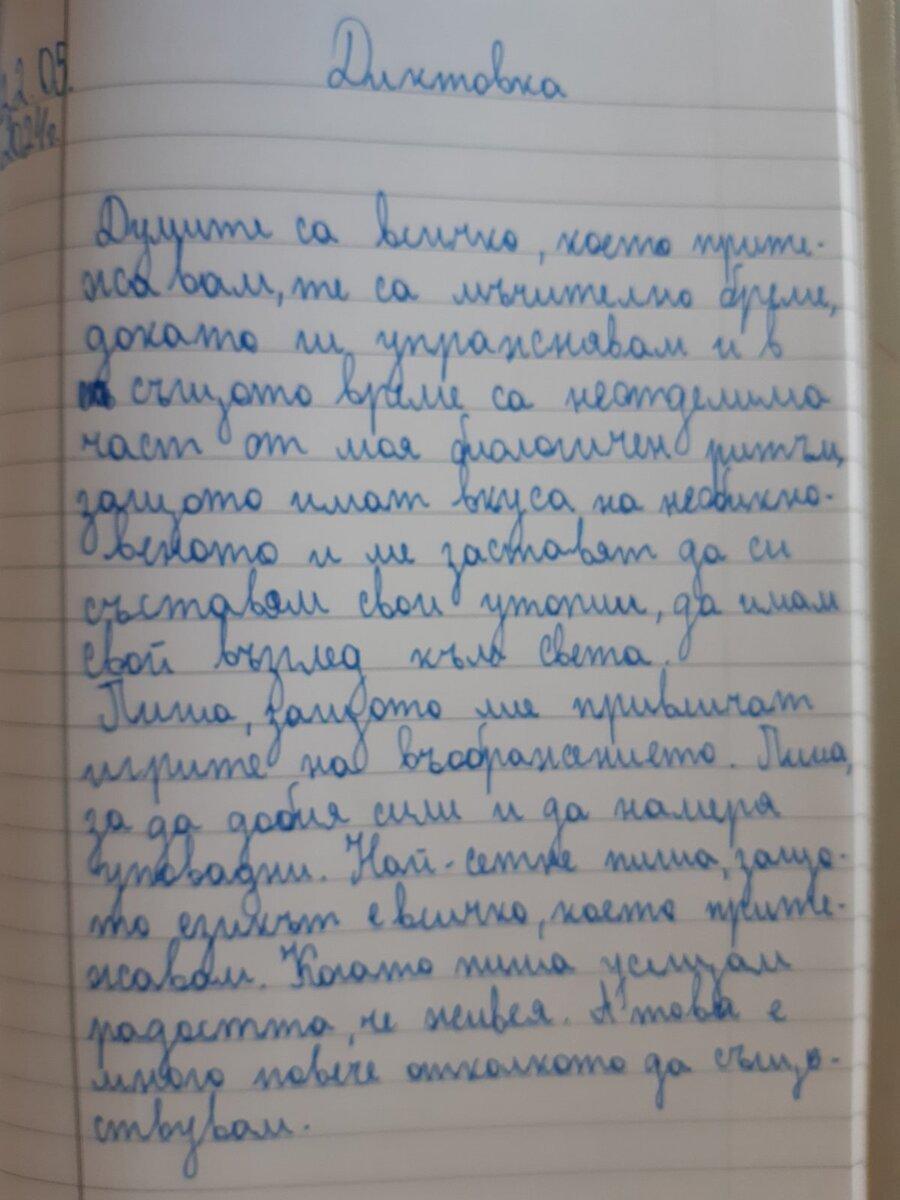 Диктовка
22.05.
2024г.
Думите са всичко, което прите-
жавам, те са мъчително бреме,
докато ги упражнявам и в
същото време са неотделима
част от моя биологичен ритъм,
защото имат вкуса на необикно-
веното и ме заставят да си
съставям свои утопии, да имам
свой възглед към света.
Пиша, защото ме привличат
игрите на въображението. Пиша,
за да добия сили и да намеря
упование. Най-сетне пиша, защо-
то езикът е всичко, което прите-
жавам. Когато пиша усещам
радостта, че живея. А това е
много повече отколкото да същес-
твувам.